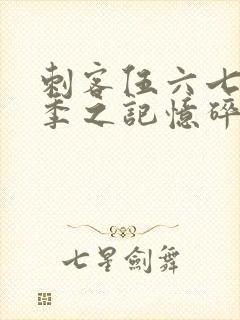 刺客伍六七
季之記憶碎
七星劍舞